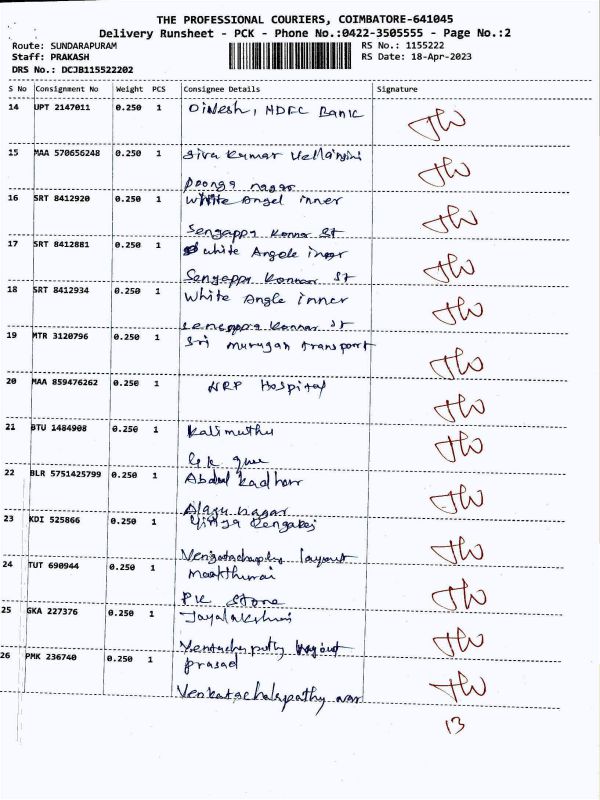 THE PROFESSIONAL COURIERS, COIMBATORE-641045
Delivery Runsheet - PCK - Phone No.:0422-3505555 - Page No.:2
Route: SUNDARAPURAM RS No.: 1155222
Staff: PRAKASH RS Date: 18-Apr-2023
DRS No.: DCJB115522202
S No Consignment No Weight PCS Consignee Details Signature
14 UPT 2147011 0.250 1 Dinesh, HDFC Bank
15 MAA 570656248 0.250 1 Siva Kumar
Poonga nagar
16 SRT 8412920 0.250 1 White Angel inner
Sengappa Konnar St
17 SRT 8412881 0.250 1 White Angele inner
Sengappa Konnar St
18 SRT 8412934 0.250 1 White Angle inner
Sengappa Konnar St
19 MTR 3120796 0.250 1 Sri Murugan transport
20 MAA 859476262 0.250 1 NRP Hospital
21 BTU 1484908 0.250 1 Kalimuthu
22 BLR 5751425799 0.250 1 Abdul Kadharr
Alagu nagar
23 KDI 525866 0.250 1
layout
24 TUT 690944 0.250 1
PK Stone
25 GKA 227376 0.250 1 Jayalakshmi
layout
26 PMK 236740 0.250 1 Prasad
Venkatachalapathy
13